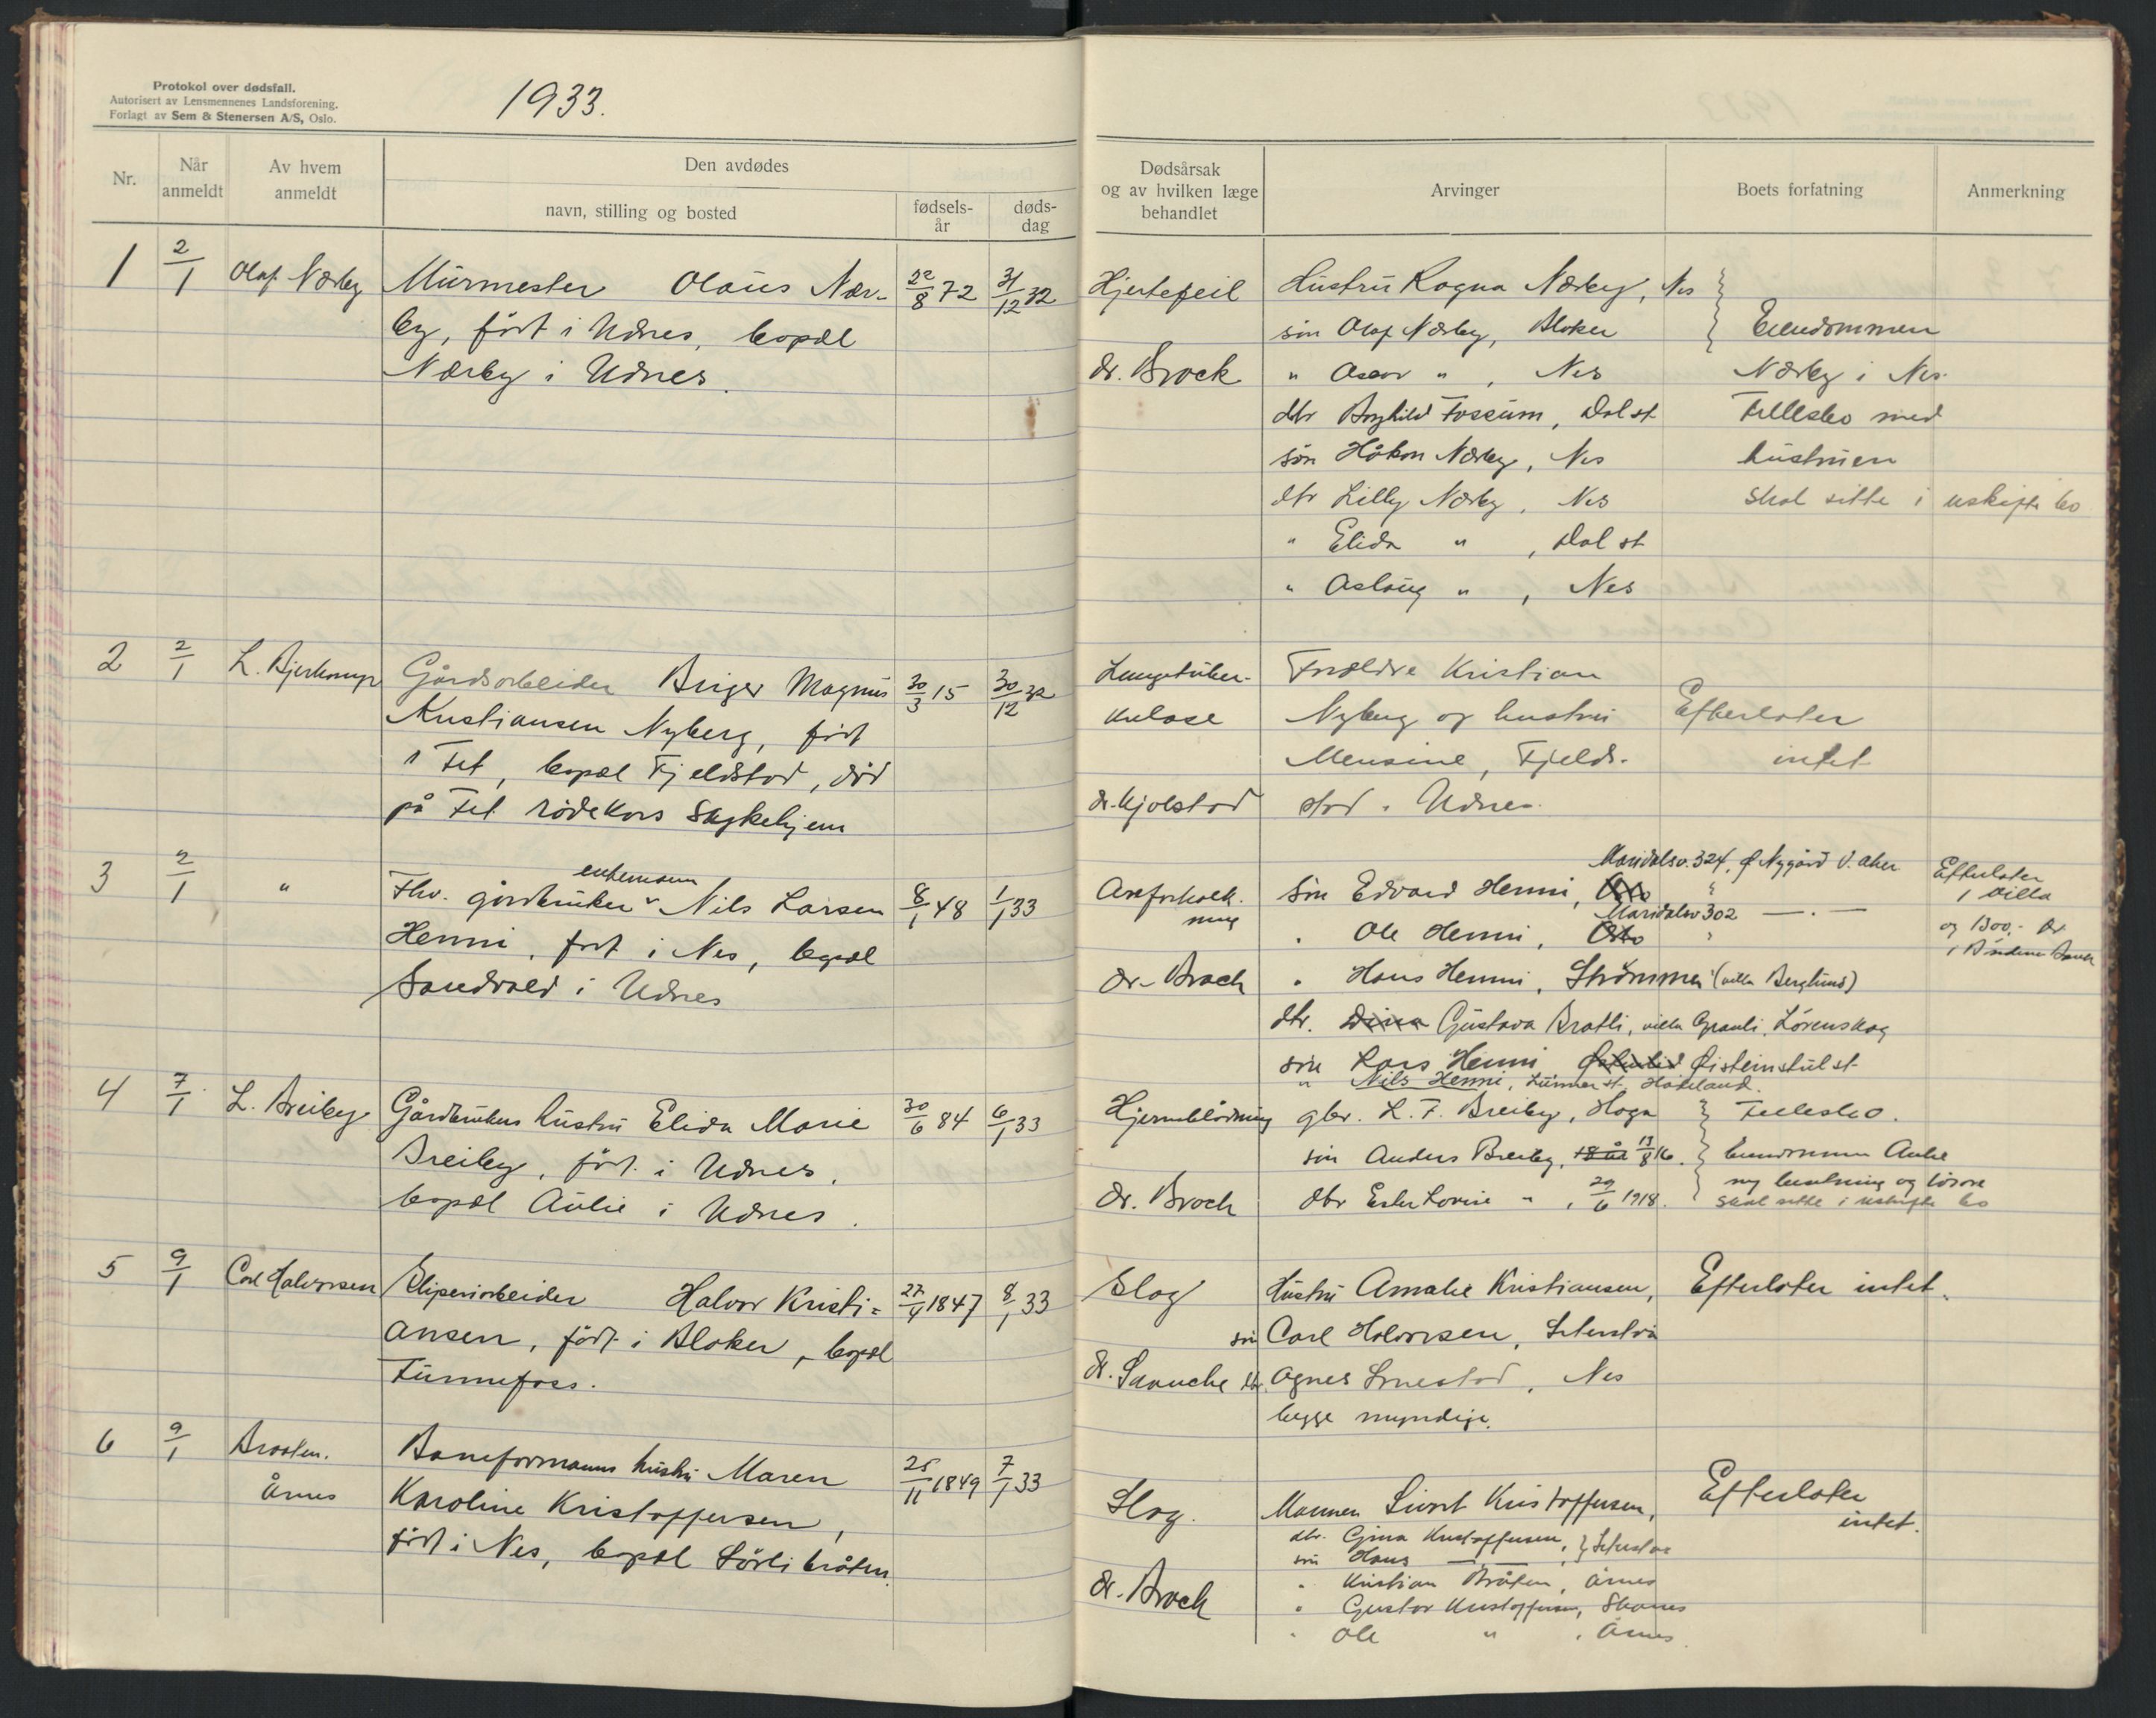 Protokol over dødsfall.
Autorisert av Lensmennenes Landsforening.
Forlagt av Sem & Stenersen A/S, Oslo.
1933.
Nr.
Når anmeldt
Av hvem anmeldt
Den avdødes
navn, stilling og bosted
fødsels-år
døds-dag
Dødsårsak og av hvilken læge behandlet
Arvinger
Boets forfatning
Anmerkning
1 2/1 Olaf Nærby Murmester Olaus Nær- 22/8 72 31/12 32
by, født i Udnes, bopæl
Nærby i Udnes.
Hjertefeil
dr. Brock
Hustru Ragna Nærby, Nes
søn Olaf Nærby, Blaker
" Oscar " , Nes
dtr Borghild Fossum, Dal st
søn Håkon Nærby, Nes
dtr Lilly Nærby, Nes
" Elida " , Dal st
" Aslaug " , Nes
Eiendommen
Nærby i Nes.
Fællesbo med
hustruen
Skal sitte i uskifte bo
2 2/1 Gårdsarbeider Birger Magnus 30/3 15 30/12 32
Kristiansen Nyberg, født
i Fet, bopæl Fjeldstad, død
på Fet røde Kors Sykehjem
Lungetuber-
kulose
dr. Kjolstad
Forældre Kristian
Nyberg og hustru
Mensine, Fjeld-
stad i Udnes.
Efterlater
intet
3 2/1 " enkemann
Fhv. gårdbruker Nils Larsen 8/1 48 1/1 33
Henni, født i Nes, bopæl
Sandvold i Udnes
Areforkalk-
ning
dr. Brock
Maridalsv. 324, Ø Nygård V. Aker
Søn Edvard Henni, Oslo "
Maridalsv 302
" Ole Henni, Oslo "
" Hans Henni, Strømmen (villa Berglund)
dtr. Gustava Bratli, villa Granli, Lørenskog
søn Lars Henni Øisteinstul st
" Nils Henni, Lunner st. Hadeland.
Efterlater
1 villa
og 1300,- kr
i Bøndernes Bank
4 7/1 L. Breiby Gårdbrukers hustru Elida Marie 30/6 84 6/1 33
Breiby, født i Udnes,
bopæl Aulie i Udnes.
Hjerneblødning
dr. Brock
gbr. L. F. Breiby, Haga
søn Anders Breiby, 18 år 13/8 16.
dtr Ester Lovise " , 29/6 1918.
Fællesbo.
Eiendommen Aulie
m/ besetning og løsøre
Skal sitte i uskifte bo
5 9/1 Carl Halvorsen Sliperiarbeider Halvor Kristi= 27/4 1847 8/1 33
ansen, født i Blaker, bopæl
Funnefoss.
Slag
dr. Saunche
Hustru Amalie Kristiansen,
søn Carl Halvorsen, Seterstøa
dtr. Agnes , Nes
begge myndige.
Efterlater intet.
6 9/1 Braaten. Baneformanns hustru Maren 25/11 1849 7/1 33
Årnes Karoline Kristoffersen,
født i Nes, bopæl Sørli bråten.
Slag.
dr. Brock
Mannen Sivert Kristoffersen,
dtr. Gina Kristoffersen, Seterstøa
søn Hans
" Kristian Bråten, Årnes
" Gustav Kristoffersen, Skarnes
" Ole " , Årnes.
Efterlater
intet.